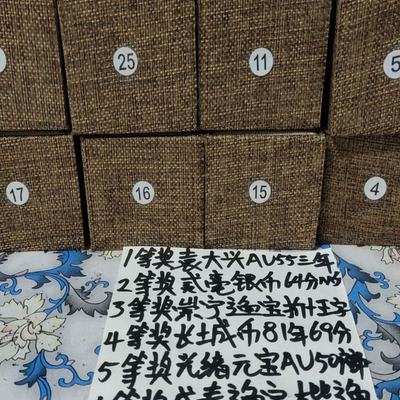 25
11
5
17
16
15
4
1等奖袁大头AU55三年
2等奖贰毫银币64分
3等奖崇宁通宝折十
4等奖长城币81年69分
5等奖光绪元宝AU50